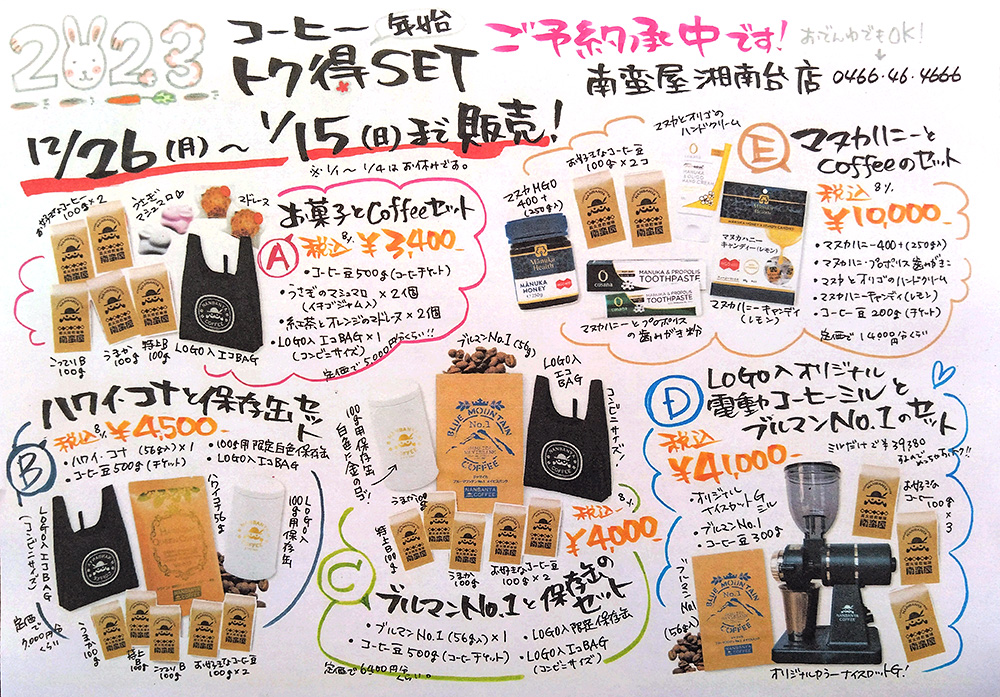 2023
コーヒー 年始
トク得SET
ご予約承中です!
おでんわでもOK!
南蛮屋 湘南台店 0466・46・4666
12/26(月)〜1/15(日)まで販売!
※1/1〜1/4はお休みです。
A
お菓子とCoffeeセット
税込 8% ¥3,400-
・コーヒー豆500g(コーヒーチケット)
・うさぎのマシュマロ×2個
(イチゴジャム入)
・紅茶とオレンジのマドレーヌ×2個
・LOGO入エコBAG×1
(コンビニサイズ)
定価で5,000円分ぐらい!!
お好きなコーヒー
100g×2
うさぎ
マシュマロ
こってりB
100g
うまか
100g
特上B
100g
LOGO入エコBAG
NANBANYA
COFFEE
南蛮屋
E
マヌカハニーと
coffeeのセット
税込 8%
¥10,000-
・マヌカハニー400+(250g入)
・マヌカハニープロポリス歯みがきこ
・マヌカとオリゴのハンドクリーム
・マヌカハニーキャンディ(レモン)
・コーヒー豆200g(チケット)
定価で14000円分ぐらい
マヌカとオリゴの
ハンドクリーム
お好きなコーヒー豆
100g×2コ
マヌカMGO
400+
(250g入)
Manuka
Health
MĀNUKA
HONEY
cosana
MANUKA & PROPOLIS
TOOTHPASTE
MANUKA & PROPOLIS
TOOTHPASTE
マヌカハニーとプロポリス
の歯みがき粉
マヌカハニー
キャンディー(レモン)
マヌカハニーキャンディ
(レモン)
B
ハワイ・コナと保存缶セット
税込 8% ¥4,500-
・ハワイ・コナ(56g入)×1
・コーヒー豆500g(チケット)
・100g用限定白色保存缶
・LOGO入エコBAG
LOGO入エコBAG
(コンビニサイズ)
ハワイコナ56g
LOGO入
100g用保存缶
定価で
7,000円分
ぐらい
うまか
100g
特上B
100g
こってりB
100g
お好きなコーヒー豆
100g×2
C
ブルマンNo.1と保存缶の
セット
税込 8%
¥4,000
・ブルマンNo.1(56g入)×1
・コーヒー豆500g(コーヒーチケット)
・LOGO入限定保存缶
・LOGO入エコBAG
(コンビニサイズ)
定価で6400円分
ぐらい。
ブルマンNo.1(56g)
LOGO入
エコ
BAG
コンビニサイズ!
100g用保存缶
白色と金のロゴ!
BLUE MOUNTAIN
No.1
COFFEE
NANBANYA
COFFEE
うまか100g
特上B100g
うまか
100g
お好きなコーヒー豆
100g×2
D
LOGO入オリジナル
電動コーヒーミルと
ブルマンNo.1のセット
ミルだけで¥39380
税込
¥41,000-
・オリジナル
ナイスカットG
ミル
・ブルマンNo.1
・コーヒー豆300g
お好きな
コーヒー
100g
×3
ブルマンNo1
(56g入)
BLUE MOUNTAIN
No.1
COFFEE
NANBANYA
COFFEE
オリジナルカラーナイスカットG!